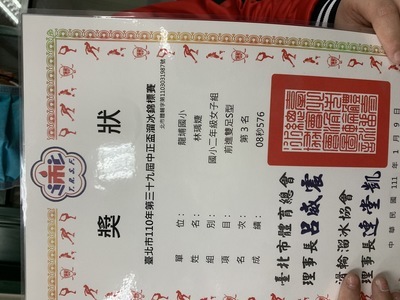 獎狀
臺北市110年第三十九屆中正盃溜冰錦標賽
北市體輔字第1103031987號
單位：龍埔國小
姓名：林瑀婕
組別：國小二年級女子組
項目：前進雙足S型
名次：第3名
成績：08秒576
臺北市體育總會
理事長呂威震
滑輪溜冰協會
理事長連堂凱
中華民國111年1月9日